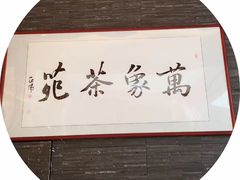 萬象茶苑